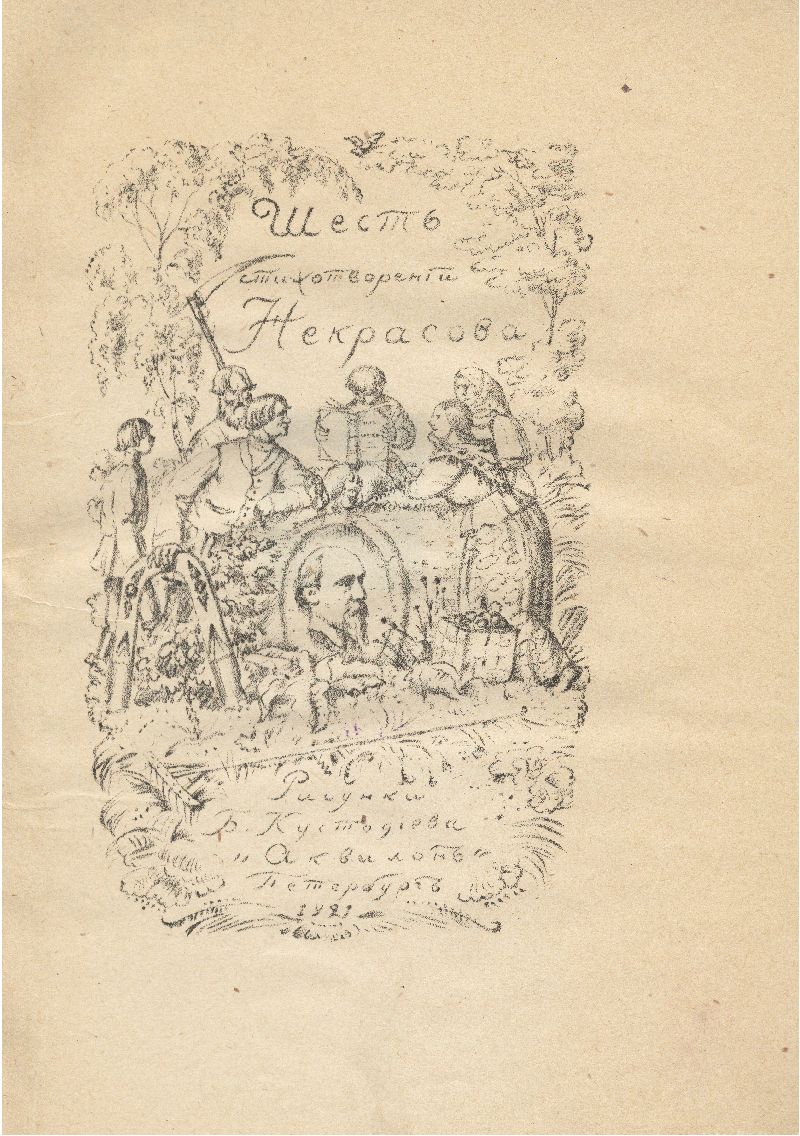 Шесть
стихотворенiй
Некрасова
Рисунки
Б. Кустодiева
"Аквилонъ"
Петербургъ
1921